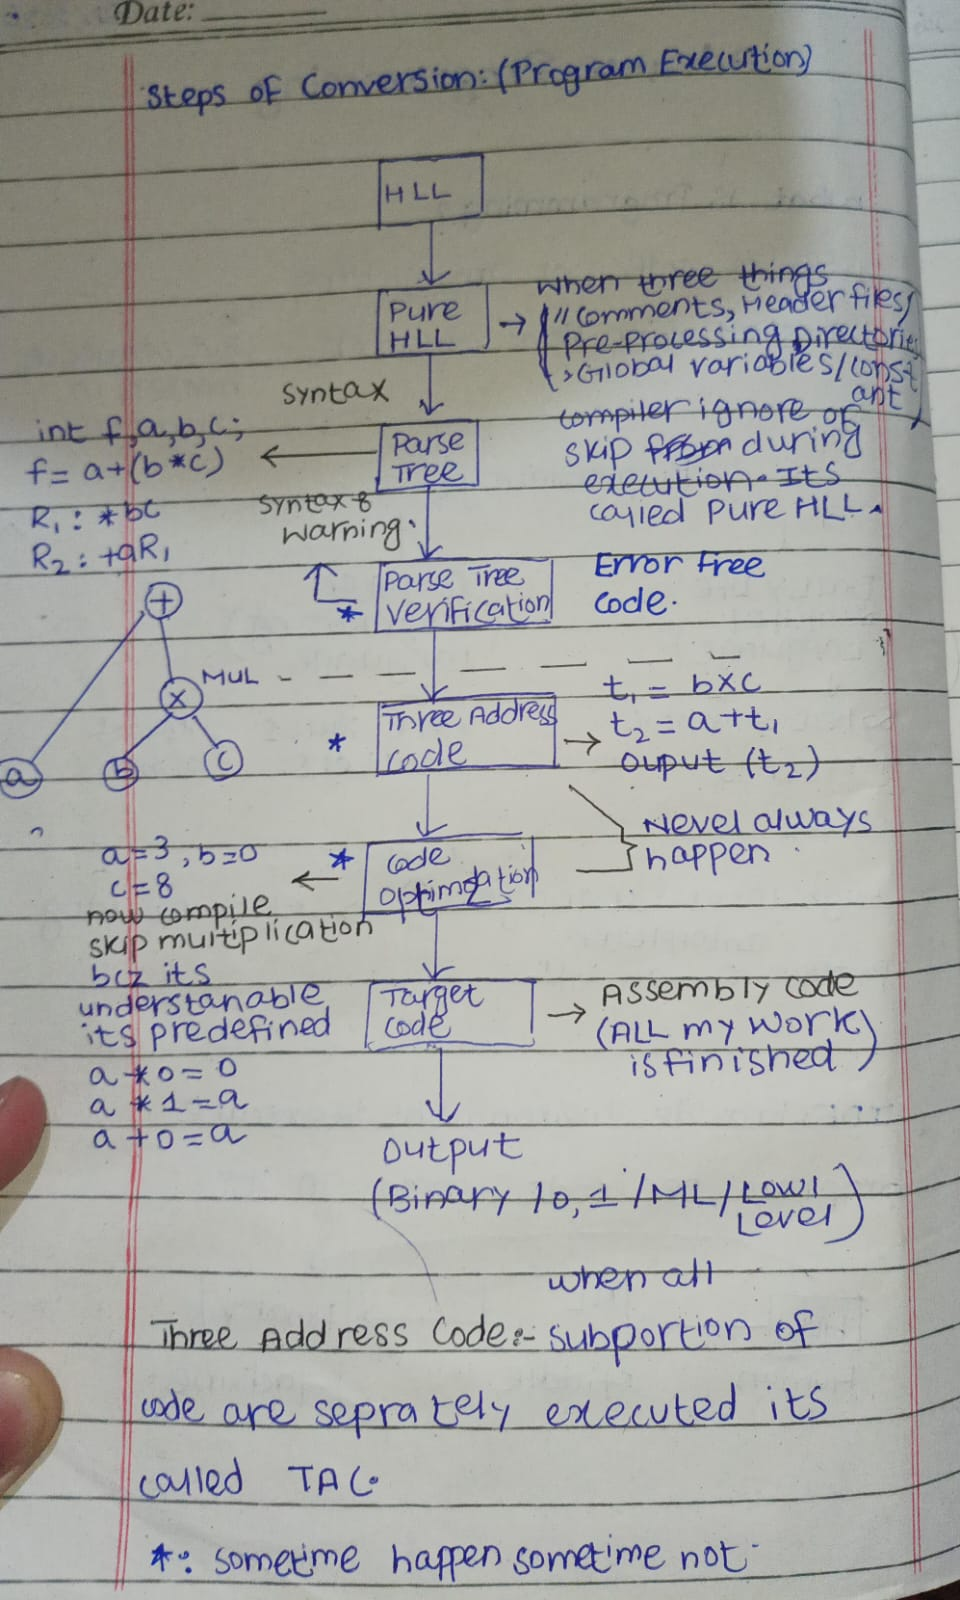 Date:
Steps of Conversion: (Program Execution)
HLL
Pure
HLL
when three things
// Comments, Header files/
Pre-Processing Directories
, Global variables/const
ant
compiler ignore or
skip during
execution. Its
called Pure HLL.
Syntax
Parse
Tree
int f,a,b,c;
f= a+(b*c)
R1 : *bc
R2 : +aR1
Syntax &
warning.
* Parse Tree
verification
Error Free
code.
+
x MUL
a b c
* Three Address
code
t1 = bxc
t2 = a+t1
ouput (t2)
Nevel always
happen
* code
a=3, b=0
c=8
now compile
skip multiplication
bcz its
understanable
its predefined
a*0=0
a*1=a
a+0=a
Target
code
Assembly code
(ALL my work
is finished)
Output
(Binary /0,1/ML/Low
Level)
when all
Three Address Code:- subportion of
code are seprately executed its
called TAC.
*: sometime happen sometime not.